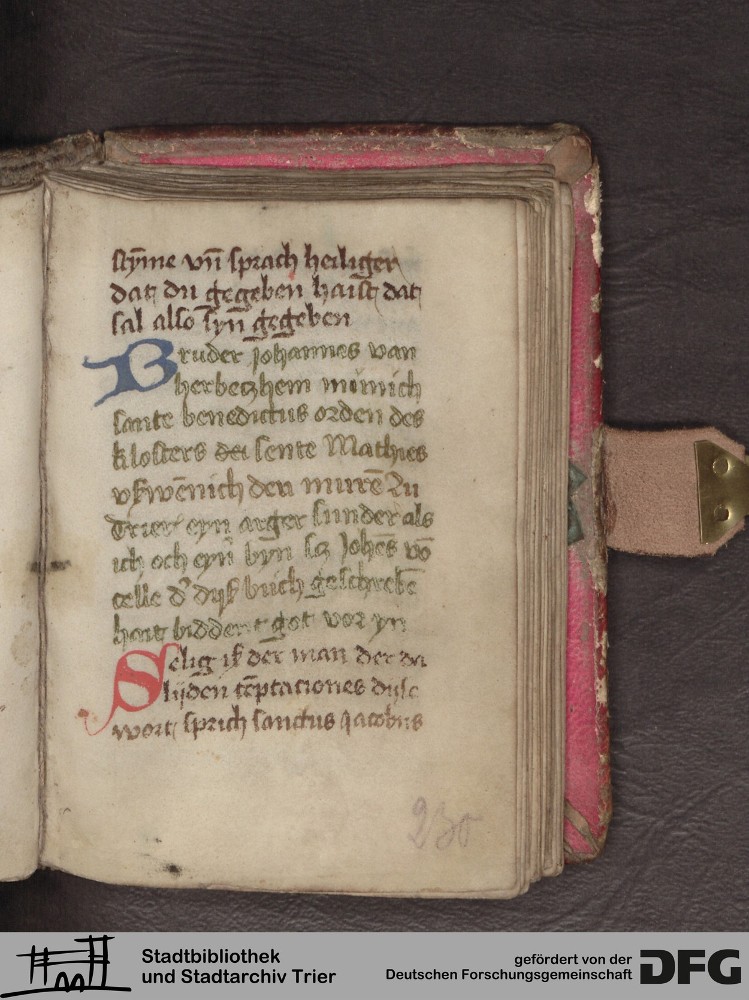 stym̄e vn̄ sprach heiliger
dat du gegeben haist dat
sal also syn̄ gegeben
Bruder johannes van
herbeczhem mūnich
sante benedictus orden des
klosters dei sente Mathies
vßwēnich den murē zu
Trier eyn arger sunder als
ich och eyn̄ byn sc̄ Johēs vō
celle d' dyß buch geschrebē
hait biddent got vor yn
Selig iß der man der da
lijden tēptaciones dyse
wort sprich sanctus jacobus
230
Stadtbibliothek
und Stadtarchiv Trier
gefördert von der
Deutschen Forschungsgemeinschaft
DFG